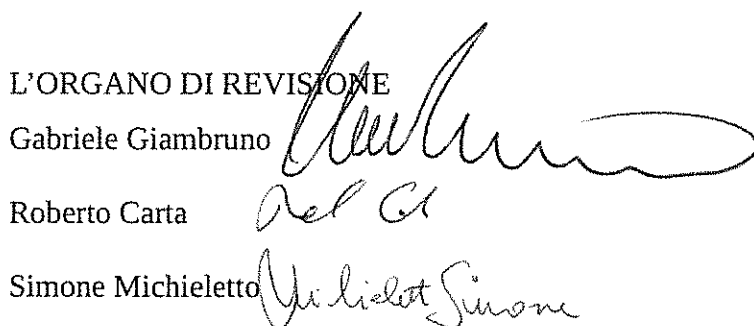 L'ORGANO DI REVISIONE
Gabriele Giambruno
Roberto Carta
Simone Michieletto Simone